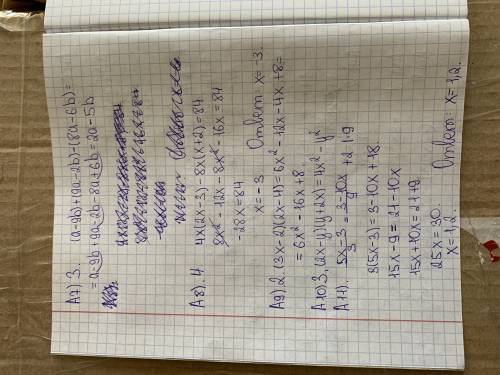 А7) 3. (a-9b)+(9a-2b)-(8a-6b)=
= a-9b+9a-2b-8a+6b = 2a-5b
А8). 4. 4x(2x-3)-8x(x+2)=84
8x²-12x-8x²-16x=84
-28x=84
x=-3 Ответ: x=-3.
А9) 2. (3x-2)(2x-4)=6x²-12x-4x+8=
= 6x²-16x+8
А10) 3, (2x-y)(y+2x)=4x²-y²
А11). (5x-3)/3 = (3-10x)/9 + 2 |·9
3(5x-3)=3-10x+18
15x-9=21-10x
15x+10x=21+9
25x=30
x=1,2. Ответ: x=1,2.